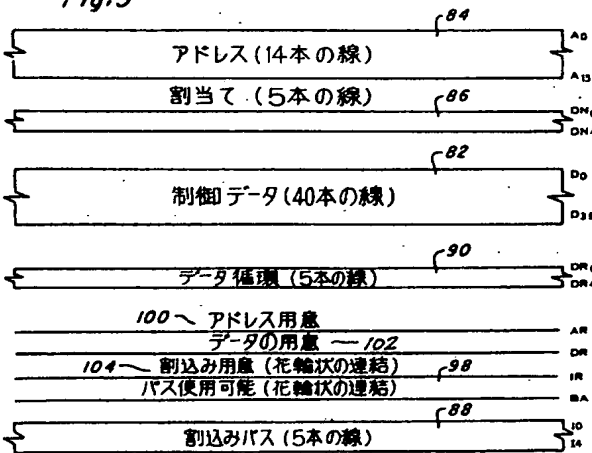 Fig.5
84
アドレス(14本の線) A0
A13
割当て (5本の線) 86 DN0
DN4
82
制御データ(40本の線) D0
D39
90
データ循環 (5本の線) DR0
DR4
100 アドレス用意 AR
データの用意 102 DR
104 割込み用意 (花輪状の連結) 98 IR
バス使用可能 (花輪状の連結) BA
88
割込みバス (5本の線) I0
I4